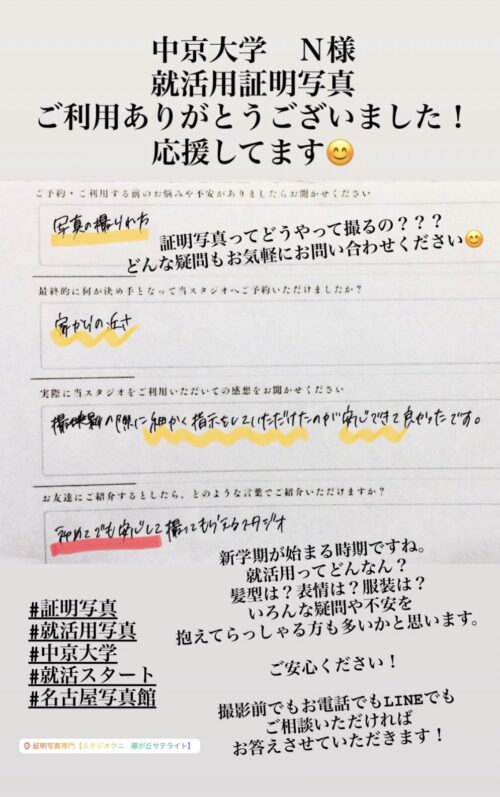 中京大学　N様
就活用証明写真
ご利用ありがとうございました！
応援してます😊
ご予約・ご利用する前のお悩みや不安がありましたらお聞かせください
写真の撮られ方
証明写真ってどうやって撮るの？？？
どんな疑問もお気軽にお問い合わせください😊
最終的に何が決め手となって当スタジオへご予約いただけましたか？
家からの近さ
実際に当スタジオをご利用いただいての感想をお聞かせください
撮影の際に細かく指示をしていただけたのが安心できて良かったです。
お友達にご紹介するとしたら、どのような言葉でご紹介いただけますか？
初めてでも安心して撮ってもらえるスタジオ
新学期が始まる時期ですね。
就活用ってどんなん？
髪型は？表情は？服装は？
いろんな疑問や不安を
抱えてらっしゃる方も多いかと思います。
ご安心ください！
撮影前でもお電話でもLINEでも
ご相談いただければ
お答えさせていただきます！
#証明写真
#就活用写真
#中京大学
#就活スタート
#名古屋写真館
証明写真専門【スタジオクニ　藤が丘サテライト】